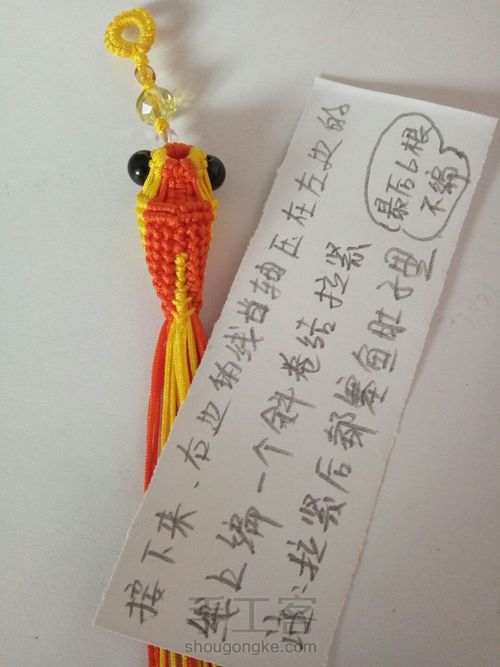 接下来、右边的线当轴压在左边的
线上编一个斜卷结拉紧
注:拉紧后都塞鱼肚子里
最后6根
不编
手工客
shougongke.com